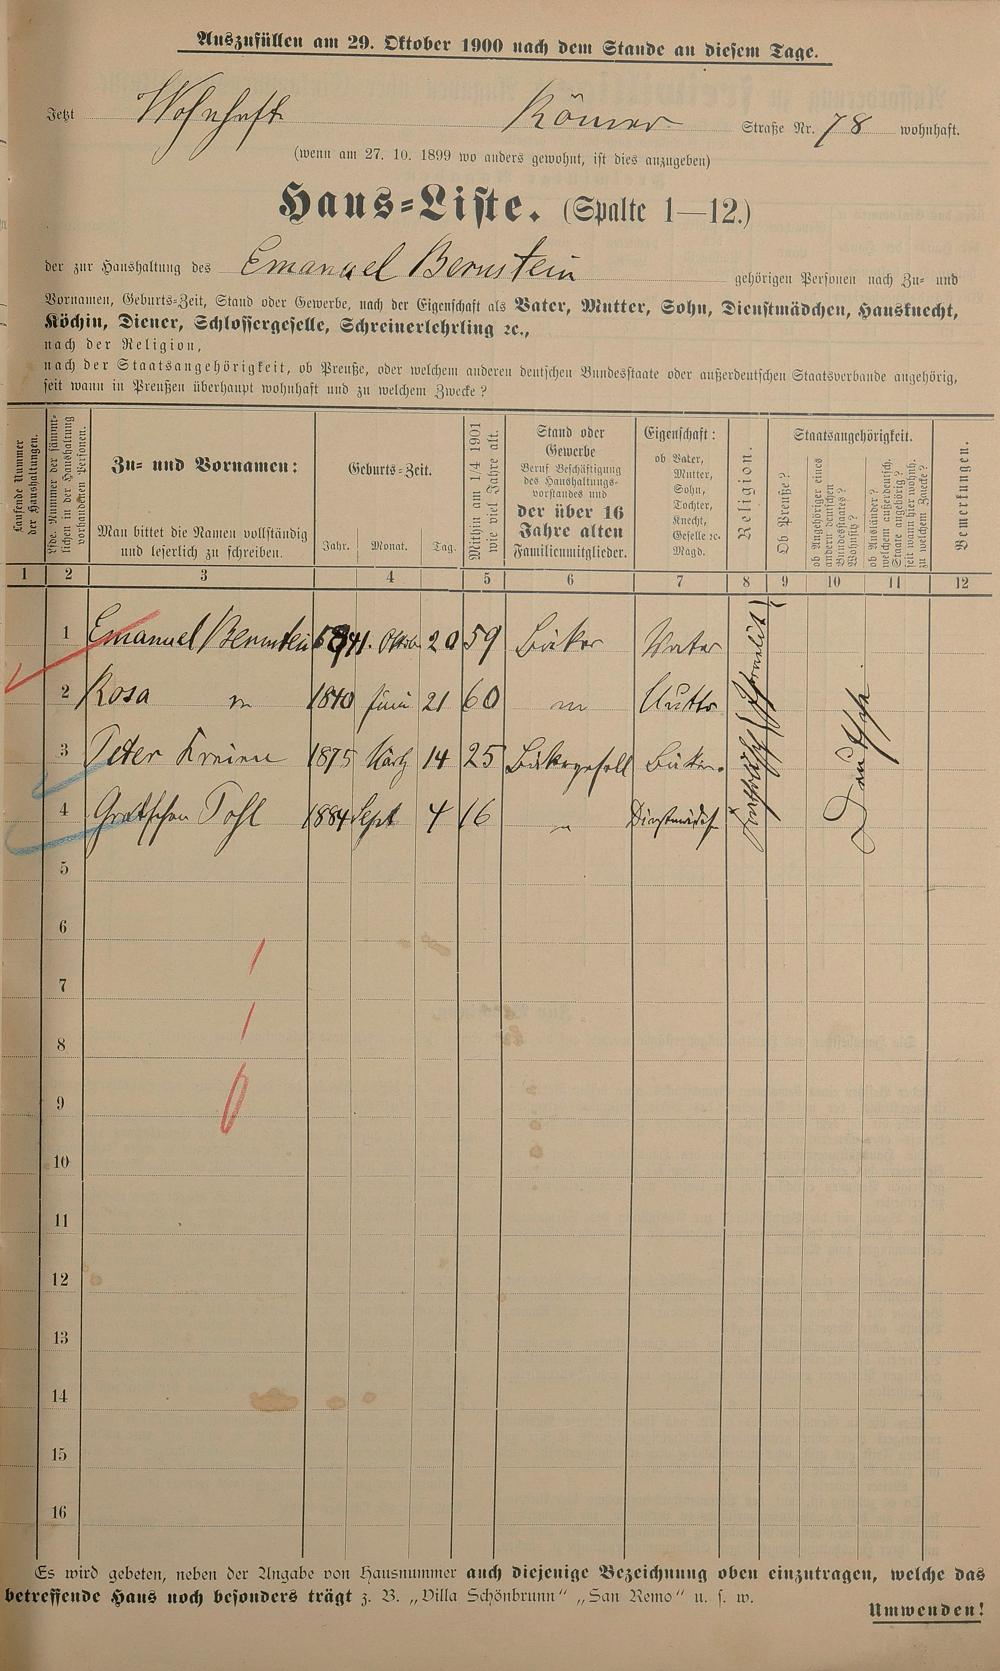 Auszufüllen am 29. Oktober 1900 nach dem Stande an diesem Tage.
Jetzt Wohnhaft Römer Straße Nr. 78 wohnhaft.
(wenn am 27. 10. 1899 wo anders gewohnt, ist dies anzugeben)
Haus-Liste. (Spalte 1—12.)
der zur Haushaltung des Emanuel Bernstein gehörigen Personen nach Zu- und
Vornamen, Geburts-Zeit, Stand oder Gewerbe, nach der Eigenschaft als Vater, Mutter, Sohn, Dienstmädchen, Hausknecht,
Köchin, Diener, Schlossergeselle, Schreinerlehrling ꝛc.,
nach der Religion,
nach der Staatsangehörigkeit, ob Preuße, oder welchem anderen deutschen Bundesstaate oder außerdeutschen Staatsverbande angehörig,
seit wann in Preußen überhaupt wohnhaft und zu welchem Zwecke?
Laufende Nummer
der Haushaltungen.
Lfde. Nummer der sämmt-
lichen in der Haushaltung
vorhandenen Personen.
Zu- und Vornamen:
Man bittet die Namen vollständig
und leserlich zu schreiben.
Geburts-Zeit.
Jahr. Monat. Tag.
Mithin am 1/4 1901
wie viel Jahre alt.
Stand oder
Gewerbe
Beruf Beschäftigung
des Haushaltungs-
vorstandes und
der über 16
Jahre alten
Familienmitglieder.
Eigenschaft:
ob Vater,
Mutter,
Sohn,
Tochter,
Knecht,
Geselle ꝛc.
Magd.
Religion.
Staatsangehörigkeit.
Ob Preuße?
ob Angehöriger eines
andern deutschen
Bundesstaates?
Wohnsitz?
ob Ausländer?
welchem außerdeutsch.
Staate angehörig?
seit wann hier wohnh.
zu welchem Zwecke?
Bemerkungen.
1 2 3 4 5 6 7 8 9 10 11 12
1 Emanuel Bernstein 1841 Oktober 20 59 Bäker Vater
2 Rosa " 1840 Juni 21 60 " Mutter
3 Peter 1875 März 14 25 Bäkergesell Bäker.
4 Gretchen Pohl 1884 Sept 4 16 " Dienstmädch
Katholisch Israelit
Deutsche
5
6
7
8
9
10
11
12
13
14
15
16
Es wird gebeten, neben der Angabe von Hausnummer auch diejenige Bezeichnung oben einzutragen, welche das
betreffende Haus noch besonders trägt z. B. „Villa Schönbrunn" „San Remo" u. s. w.
Umwenden!